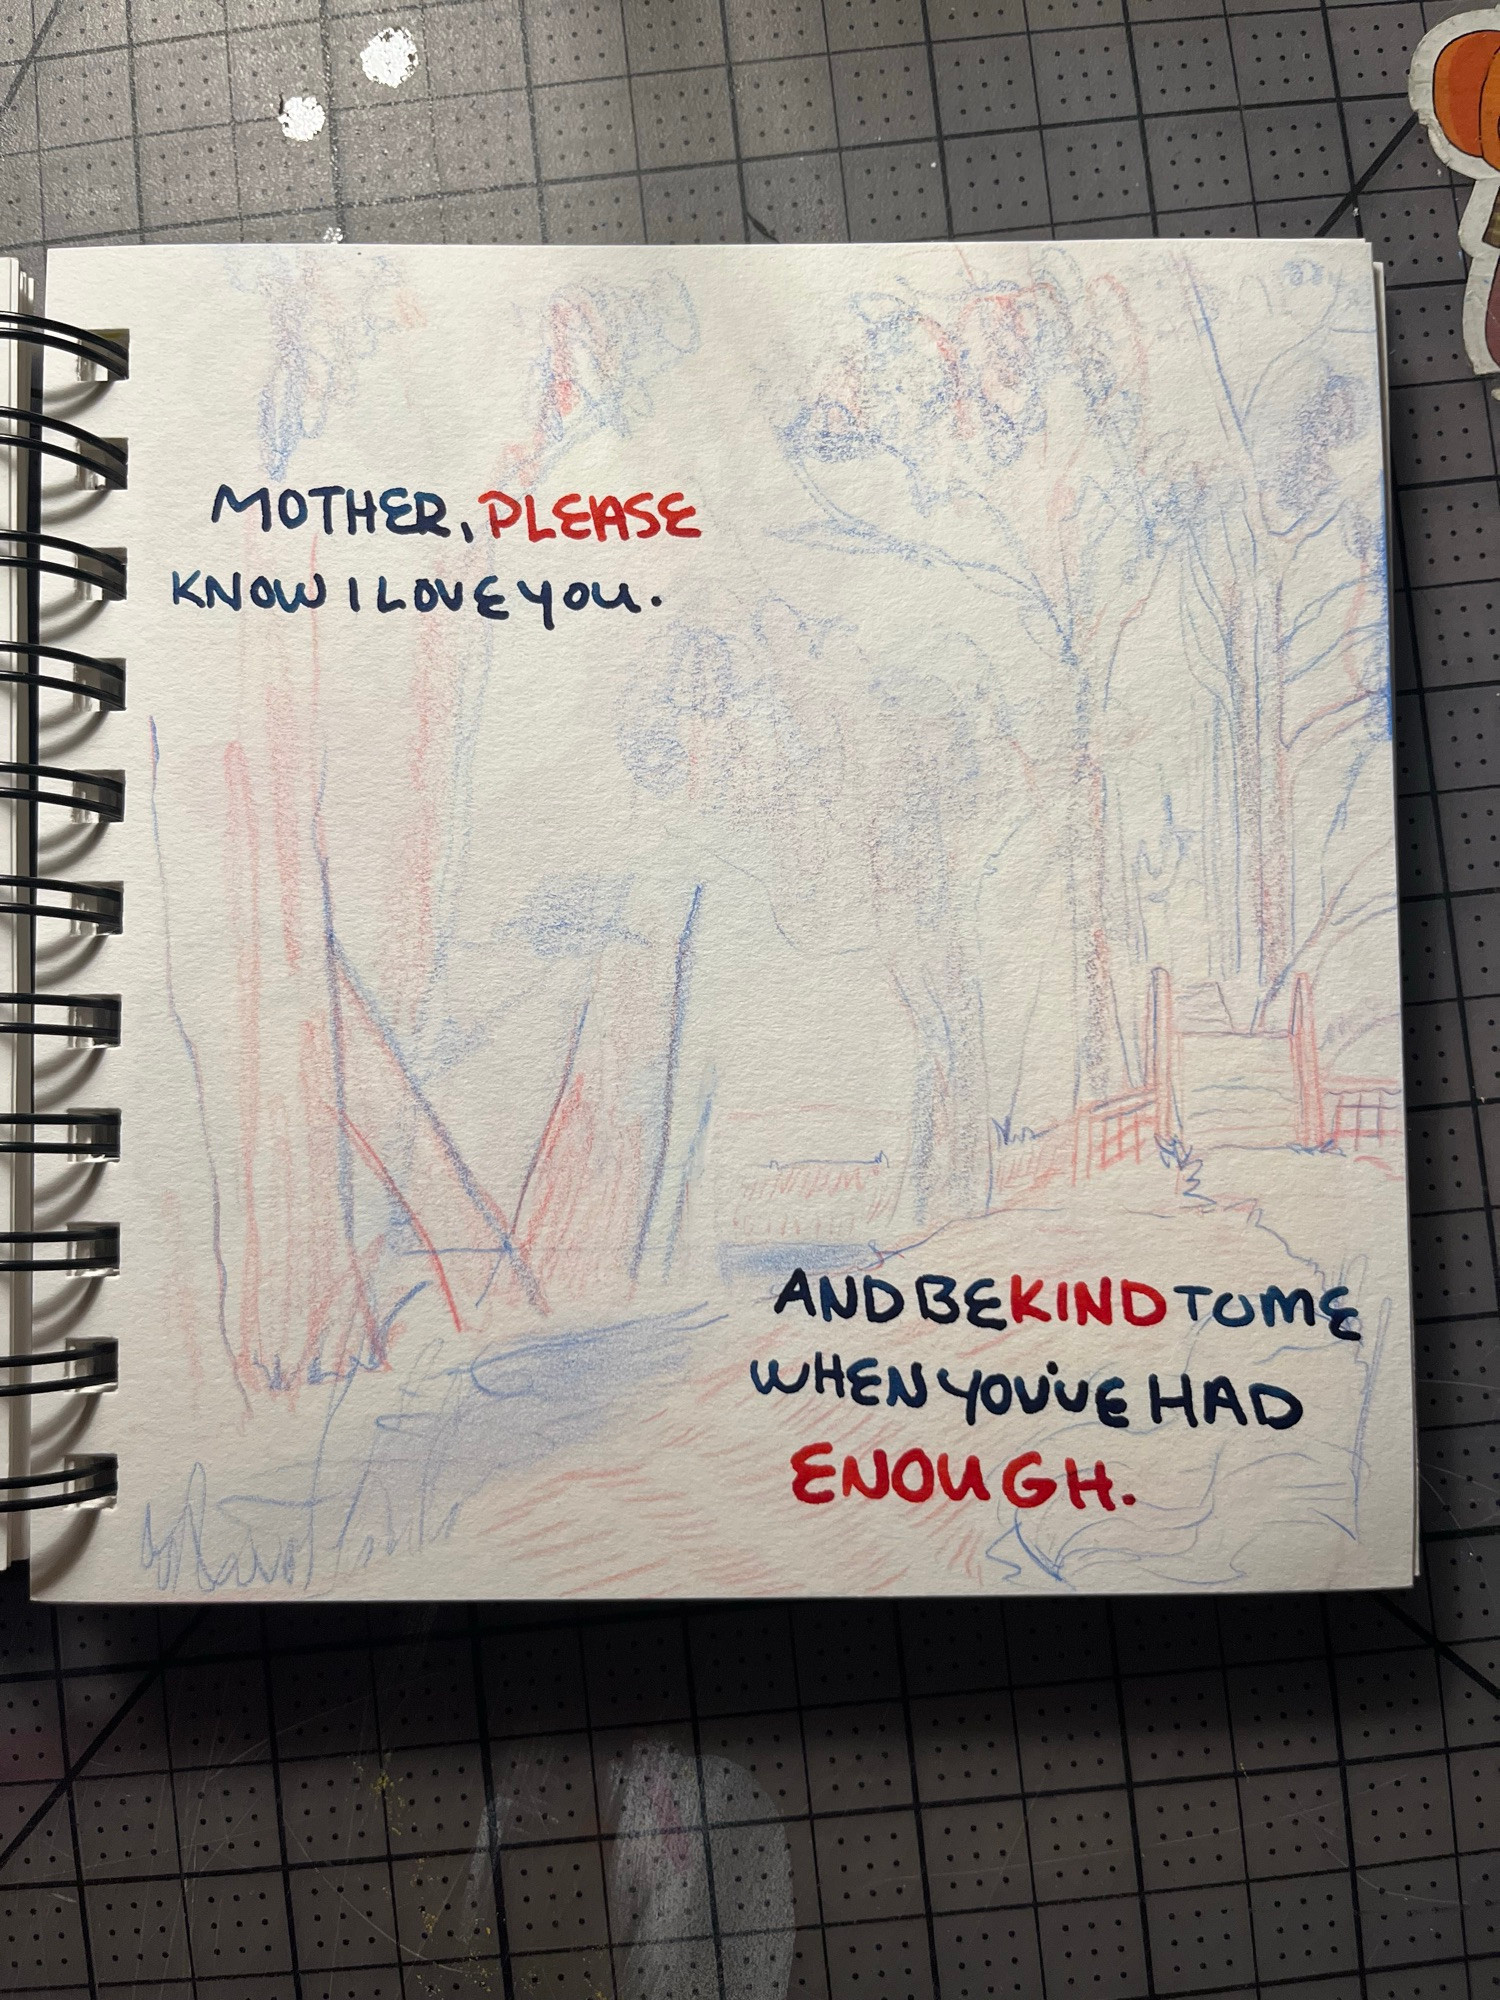 MOTHER, PLEASE
KNOW I LOVE YOU.
AND BE KIND TO ME
WHEN YOU'VE HAD
ENOUGH.